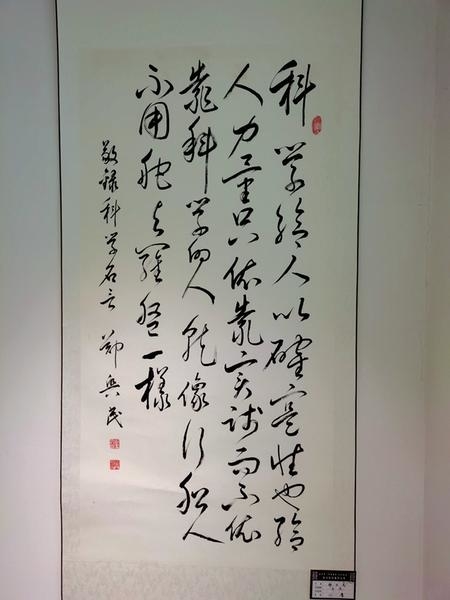 科学给人以確实性也给
人力量只依靠实践而不依
靠科学的人就像行船人
不用舵与羅盘一樣
敬録科学名言 鄭興民